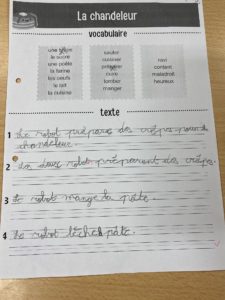 La chandeleur
vocabulaire
une crêpe
le sucre
une poêle
la farine
les oeufs
le lait
la cuisine
sauter
cuisiner
préparer
cuire
tomber
manger
ravi
content
maladroit
heureux
texte
1 Le robot prépare des crêpes pour la
chandeleur.
2 Les deux robot préparent des crêpes.
3 Le robot mange la pâte.
4 Le robot lèche pâte.